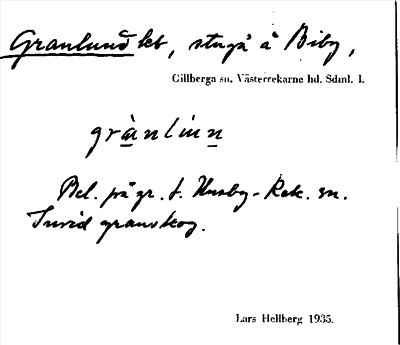 Granlund kt, stuga å Biby,
Gillberga sn. Västerrekarne hd. Sdml. l.
grànlun
Bel. på gr. t. Husby-Rek. sn.
Invid granskog.
Lars Hellberg 1935.